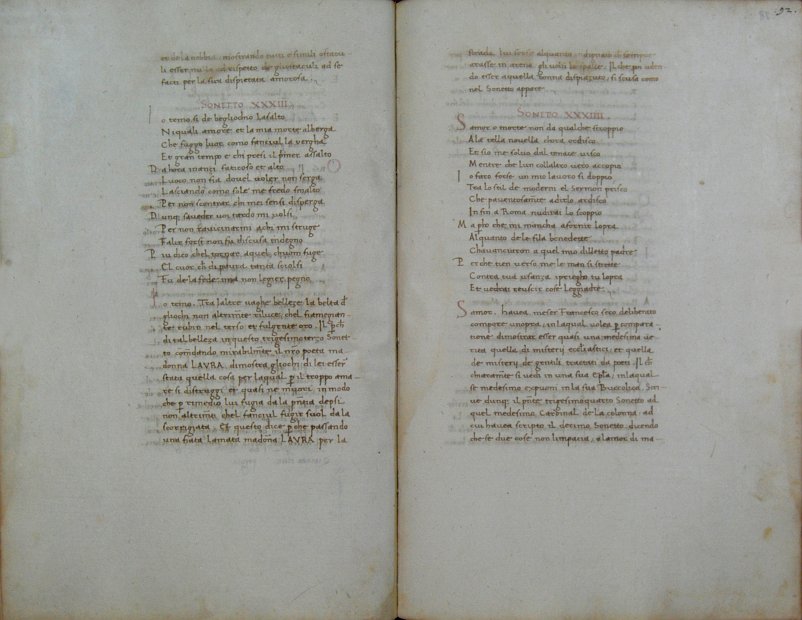 et de la nobbil, mostrando tutti esser
li esser nulla ad rispetto de gli ad se
facti per la sua dispietata amorosa.
SONETTO XXXIII
Io temo si de begliochi lasalto
Ni quali amore et la mia morte alberga
Che fuggo luor come fanciul la vergha
Et gran tempo e chi presi il primer assalto
Da hora inanzi faticoso et alto
Luoco non fia dovel voler non serga
Lasciando come sole me fredo smalto
Per non scontrar chi mei sensi disperga
Dunq. saveder voi tardo mi volsi
Per non ravicinarmi achi mi struge
Falir forsi non fu discusa indegno
Piu dico chel tornar aquel chuom fuge
El cuor ch di paura tanta sciolsi
Fu de la fede mia non legier pegno
Io temo. Tra laltre vaghe bellezze la belta d
gliochi non altrimte riluce, chel
te rubin nel terso et fulgente oro. Il pch
di tal bellezza in questo trigesimo terzo Sonet
to comendando mirabilmte il nro poeta ma
donna LAVRA, dimostra gliochi di lei esser
stata quella cosa per laqual p il troppo ama
re si distruggi et quasi ne muori in modo
che p rimedio lui fugia da la pntia
non altrimte chel fanciul fugir suol da la
scoreggiata, Et questo dice p che passando
una fiata lamata madona LAVRA per la
92.
strada lui
trasse in
do esser aquella donna dispiaciuto, si scusa como
nel Sonetto appare
SONETTO XXXIIII
Samor o morte non da qualche stroppio
Ala tella novella chora ordisco
Et sio me solvo dal tenace visco
Mentre che lun collaltro vero accopio
Io faro forse un mio lavoro si doppio
Tra lo stil de moderni el Sermon prisco
Che paventosamte adirlo ardisco
Infin a Roma nudirai lo scoppio
Ma pho che mi mancha afornir lopra
Alquanto de le fila benedette
Chavanciaron a quel mio dilletto padre
Perche tien verso me le man si strette
Contra tua usanza iprigho tu lopra
Et vedrai reuscir cose leggiadre
Samor. havea meser Francesco seco deliberato
comporre unopra, in laqual volea p compara
tione dimostrar esser quasi una medesima de
rita quella di misterij ecclesiastici, et quella
de misterij de gentili tractati da poeti. Il ch
chiaramte si vedi in una sua Epla, in laqual
se medesimo expuoni in la sua Buccolica. Scri
ve dunq. il pnte trigesimoquarto Sonetto ad
quel medesimo Cardinal de la colonna, ad
cui havea scripto il decimo Sonetto, dicendo
che se due cose non limpaccia, o lamor di ma-